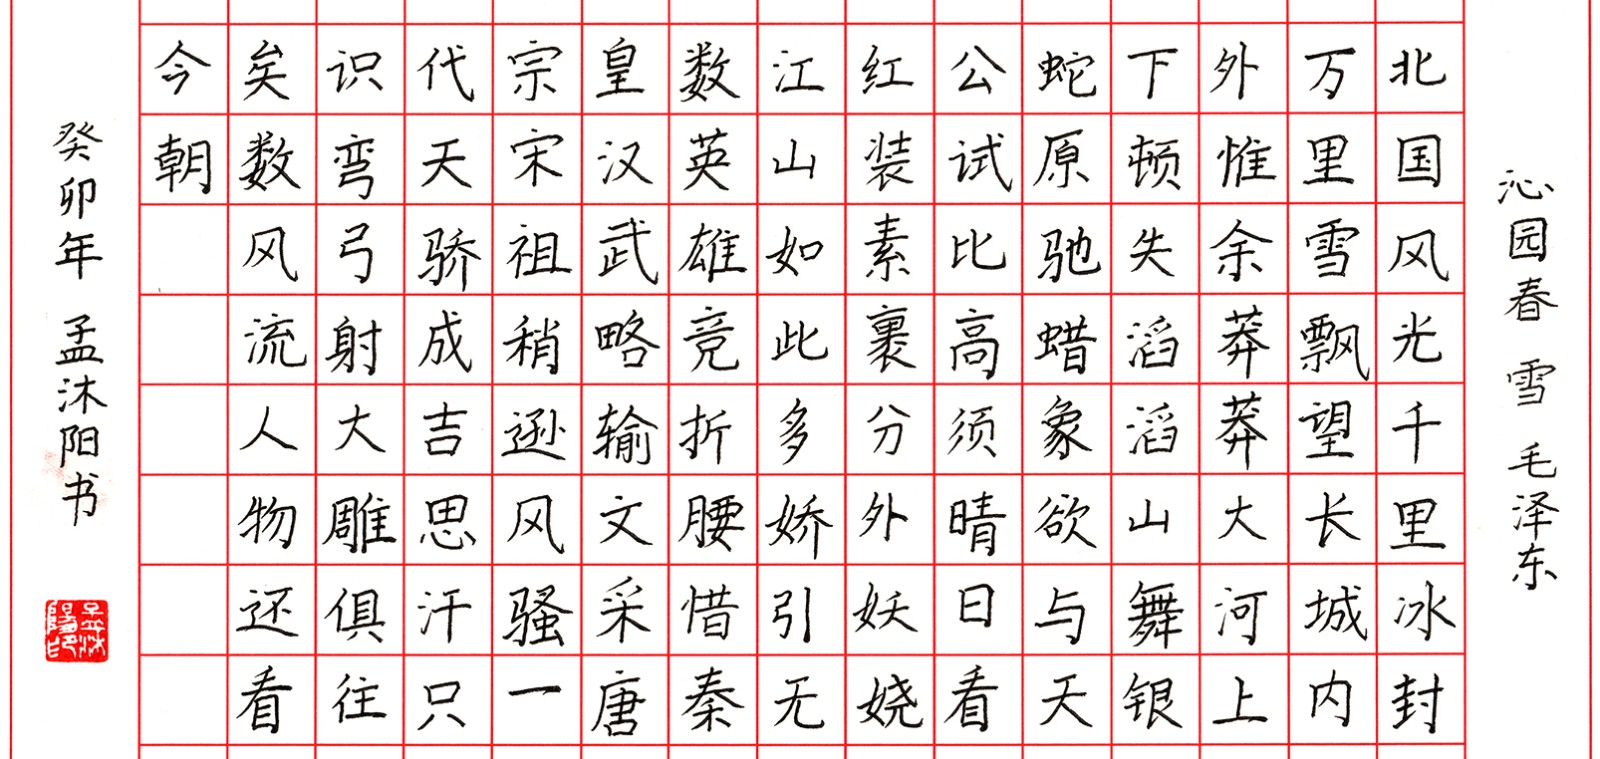 沁园春 雪 毛泽东
北国风光千里冰封
万里雪飘望长城内
外惟余莽莽大河上
下顿失滔滔山舞银
蛇原驰蜡象欲与天
公试比高须晴日看
红装素裹分外妖娆
江山如此多娇引无
数英雄竞折腰惜秦
皇汉武略输文采唐
宗宋祖稍逊风骚一
代天骄成吉思汗只
识弯弓射大雕俱往
矣数风流人物还看
今朝
癸卯年 孟沐阳书
孟沐
陽印